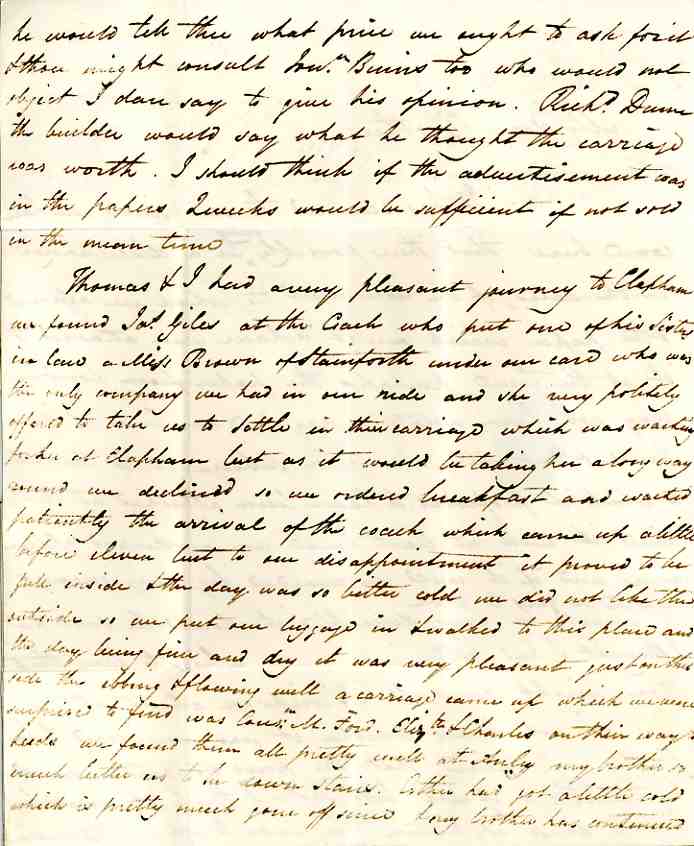 he would tell thee what price we ought to ask for it
& thou might consult Jonn. Binns too who would not
object I dare say to give his opinion. Richd. Dunn
the builder would say what he thought the carriage
was worth. I should think if the advertisement was
in the papers 2 weeks would be sufficient if not sold
in the mean time
Thomas & I had a very pleasant journey to Clapham
we found Jas. Giles at the Coach who put one of his Sister
in law a Miss Brown of Stainforth under our care who was
the only company we had in our ride and she very politely
offered to take us to Settle in their carriage which was waiting
for her at Clapham but as it would be taking her a long way
round we declined so we ordered breakfast and waited
patiently the arrival of the coach which came up a little
before eleven but to our disappointment it proved to be
full inside & the day was so bitter cold we did not like the
outside so we put our luggage in & walked to this place and
the day being fine and dry it was very pleasant just on this
side the ebbing & flowing well a carriage came up which we were
surprised to find was Cousn. M. Ford. Elizth. & Charles on their way to
Leeds we found them all pretty well at my brother so
much better as to be down stairs. Esther had got a little cold
which is pretty much gone off since & my brother has continued